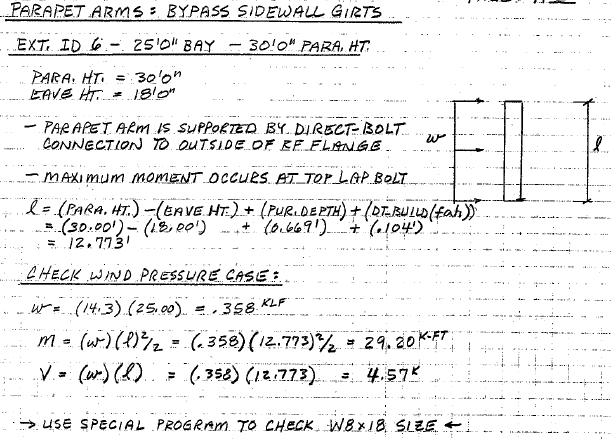 PARAPET ARMS: BYPASS SIDEWALL GIRTS
EXT. ID 6 - 25'0" BAY - 30'0" PARA. HT.
PARA. HT. = 30'0"
EAVE HT. = 18'0"
- PARAPET ARM IS SUPPORTED BY DIRECT-BOLT
CONNECTION TO OUTSIDE OF EF FLANGE
w
l
- MAXIMUM MOMENT OCCURS AT TOP LAP BOLT
l = (PARA. HT.) - (EAVE HT.) + (PUR. DEPTH) + (DT-BUILD (fah))
= (30.00') - (18.00') + (0.669') + (.104')
= 12.773'
CHECK WIND PRESSURE CASE:
w = (14.3)(25.00) = .358 KLF
M = (w)(l)²/2 = (.358)(12.773)²/2 = 29.20 K-FT
V = (w)(l) = (.358)(12.773) = 4.57 K
→ USE SPECIAL PROGRAM TO CHECK W8x18 SIZE ←